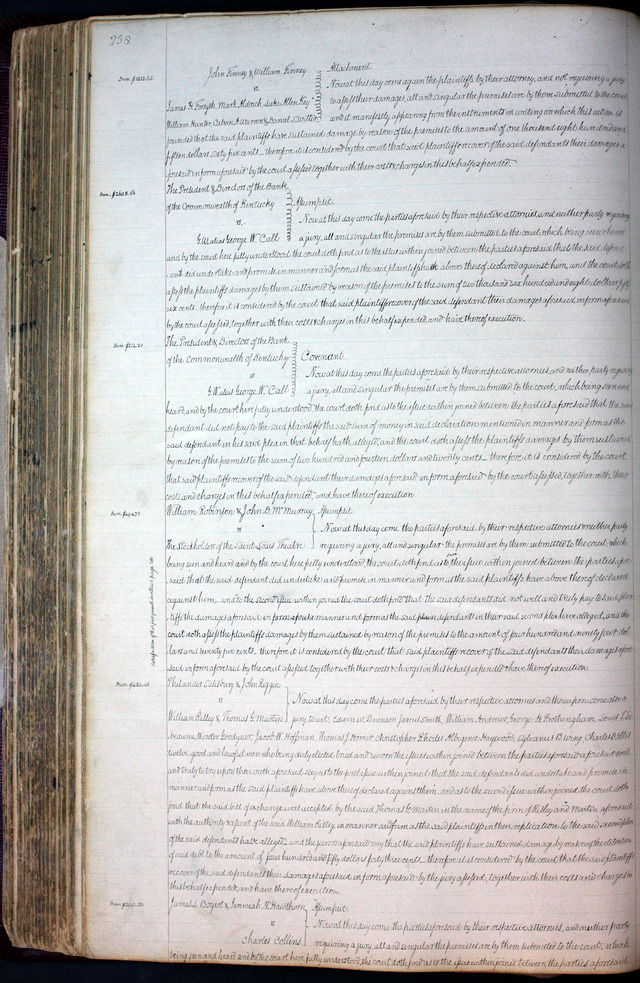 258.
John Finney & William Finney
Attachment
Dam. $1815.65
vs.
Now at this day come again the plaintiffs by their attorney, and not requiring a jury
James H. Forsyth, Mark Aldrich, Luke
to assess their damages, all and singular the premises are by them submitted to the court
William Hunter, Calvin A. Warren & Daniel
and it manifestly appearing from the instruments in writing on which this action is
founded that the said plaintiffs have sustained damage by reason of the premises to the amount of one thousand eight hundred and
fifteen dollars sixty five cents. therefore it is considered by the court that said plaintiffs recover of the said defendants their damages a-
foresaid in form aforesaid by the court assessed together with their costs & charges in this behalf expended.
The President & Directors of the Bank
Dam. $2608.56
of the Commonwealth of Kentucky
Assumpsit.
vs.
Now at this day come the parties aforesaid by their respective attornies and neither party requiring
G. W. alias George W. Call
a jury, all and singular the premises are by them submitted to the court, which being seen & heard
and by the court here fully understood the court doth find as to the issue within joined between the parties aforesaid that the said defend-
ant did undertake and promise in manner and form as the said plaintiffs hath above thereof declared against him, and the court doth
assess the plaintiffs damages by them sustained by reason of the premises to the sum of two thousand six hundred and eight dollars fifty
six cents. therefore it is considered by the court that said plaintiffs recover of the said defendant their damages aforesaid in form aforesaid
by the court assessed, together with their costs & charges in this behalf expended, and have thereof execution.
The President & Directors of the Bank
Dam. $214.20
of the Commonwealth of Kentucky
Covenant.
vs.
Now at this day come the parties aforesaid by their respective attornies, and neither party requiring
G. W. alias George W. Call
a jury, all and singular the premises are by them submitted to the court, which being seen and
heard, and by the court here fully understood, the court doth find as to the issue within joined between the parties aforesaid that the said
defendant did not pay to the said plaintiffs the said sum of money in said declaration mentioned in manner and form as the
said defendant in his said plea in that behalf hath alleged, and the court doth assess the plaintiffs damages by them sustained
by reason of the premises to the sum of two hundred and fourteen dollars and twenty cents. therefore it is considered by the court
that said plaintiffs recover of the said defendant their damages aforesaid in form aforesaid by the court assessed, together with their
costs and charges in this behalf expended, and have thereof execution
William Robinson & John D. McMurray
Assumpsit.
vs.
Now at this day come the parties aforesaid by their respective attornies & neither party
The Stockholders of the Saint Louis Theatre
requiring a jury, all and singular the premises are by them submitted to the court, which
being seen and heard and by the court here fully understood, the court doth find as to the first issue within joined between the parties afore-
said that the said defendant did undertake and promise in manner and form as the said plaintiffs have above thereof declared
against him, and to the second issue within joined the court doth find that the said defendants did not well and truly pay to said plain-
tiffs the damages aforesaid in manner and form as the said defendants in their said second plea have alleged, and the
court doth assess the plaintiffs damages by them sustained by reason of the premises to the amount of four hundred and ninety four dol-
lars and seventy five cents. therefore it is considered by the court that said plaintiffs recover of the said defendants their damages afore-
said in form aforesaid by the court assessed together with their costs & charges in this behalf expended & have thereof execution.
Philander Salisbury & John
vs.
Now at this day come the parties aforesaid by their respective attornies and thereupon come also a
William Ridley & Thomas G. Martin
jury to wit: Edwin W. Dennison, James Smith, William Andrews, George H. Frothingham, Louis
beaume, Wooster Goodyear, Jacob W. Hoffman, Thomas J. Homer, Christopher Rhodes, Heywood, Sylvanus B. Wing, Charles
twelve good and lawful men who being duly elected tried and sworn the issues within joined between the parties aforesaid well
and truly to try upon their oath aforesaid say as to the first issue within joined that the said defendants did undertake and promise in
manner and form as the said plaintiffs have above thereof declared against them, and as to the second issue within joined the court doth
find that the said bill of exchange was accepted by the said Thomas G. Martin in the name of the firm of Ridley and Martin aforesaid
with the authority & assent of the said William Ridley in manner and form as the said plaintiffs in their replication to the said second plea
of the said defendants hath alleged, and the jurors aforesaid say that the said plaintiffs have sustained damage by reason of the
of said debt to the amount of four hundred and fifty dollars forty three cents. therefore it is considered by the court that the said plaintiffs
recover of the said defendants their damages aforesaid in form aforesaid by the jury assessed, together with their costs and charges in
this behalf expended, and have thereof execution.
James L. Bogert & Jeremiah N. Hawthorn
Assumpsit.
vs
Now at this day come the parties aforesaid by their respective attornies, and neither party
Charles Collins
requiring a jury, all and singular the premises are by them submitted to the court, which
being seen and heard and by the court here fully understood, the court doth find as to the issue within joined between the parties aforesaid